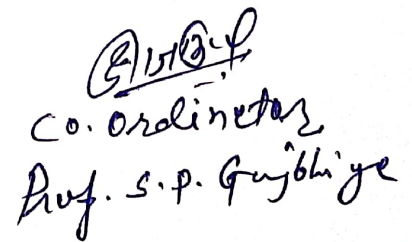 Co. Ordinetor
Prof. S. P. Gajbhiye